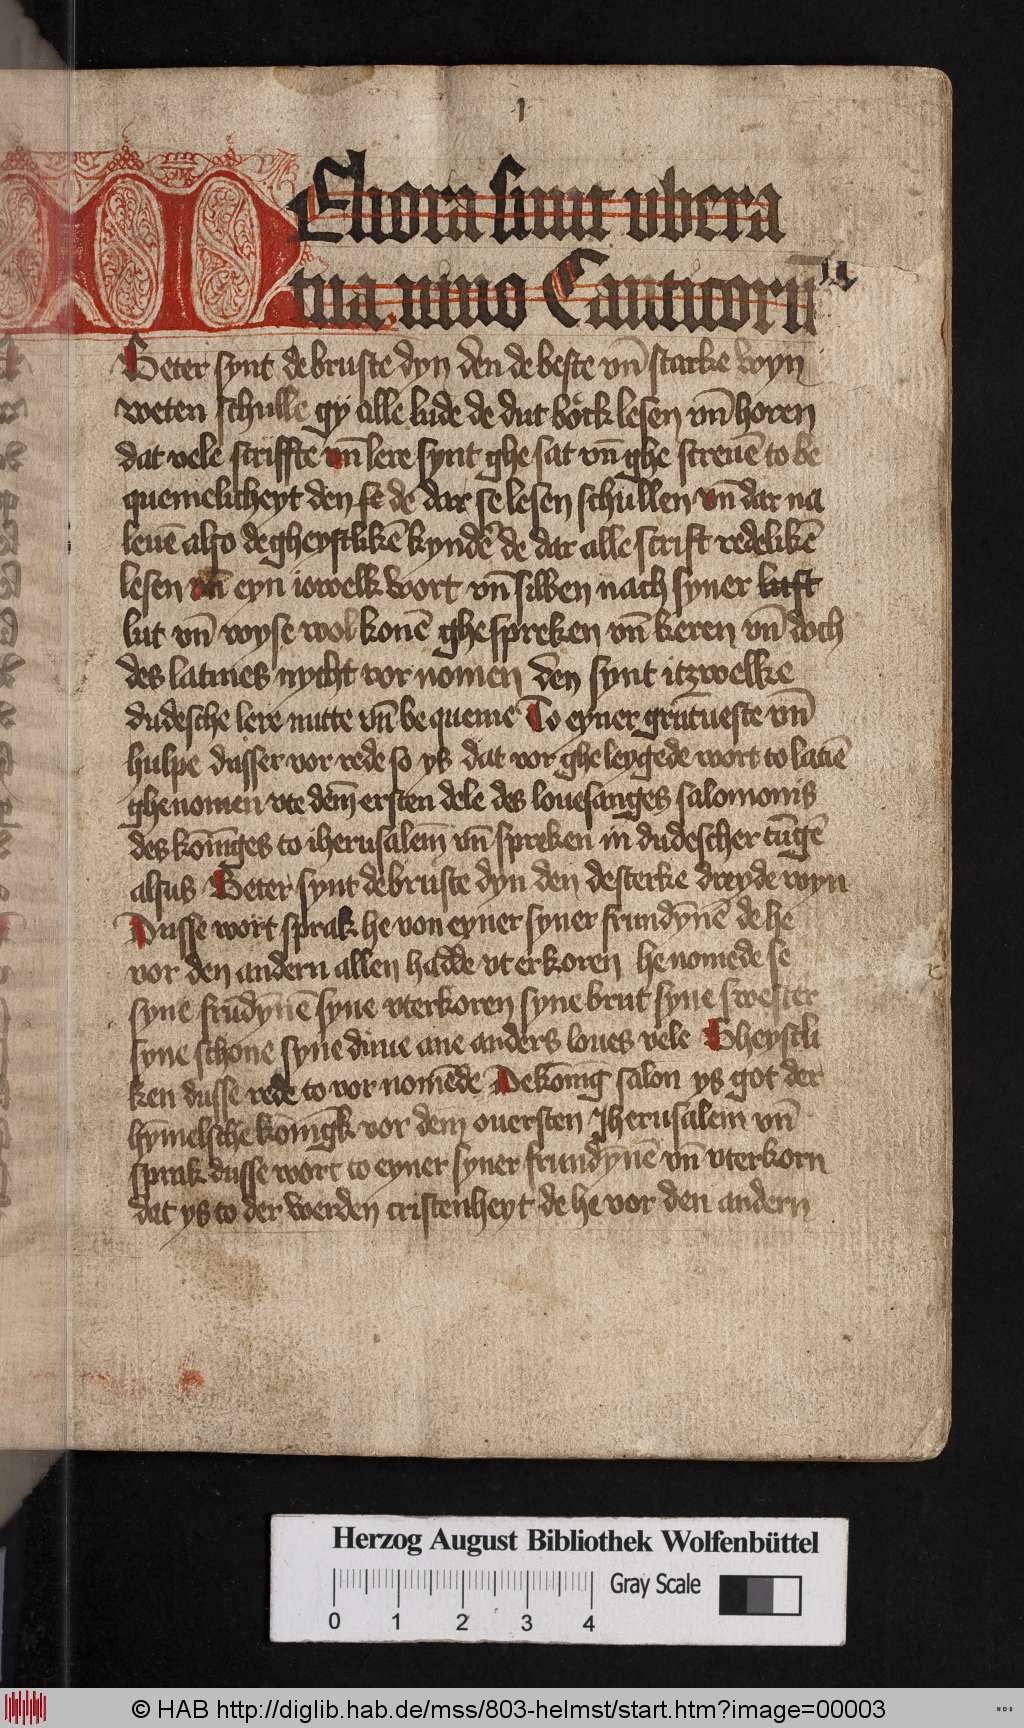 1
MEliora sunt vbera
tua vino Canticorū
Beter synt de bruste dyn den de beste vn̄ starke wyn
weten schulle gy alle lude de dut bock lesen vn̄ horen
dat vele scriffte vn̄ lere synt ghe sat vn̄ ghe screuē to be
quemelicheyt den de dar se lesen schullen vn̄ dar na
leuē also de gheystlikē kyndē de dar alle scrift redelikē
lesen vn̄ eyn iowelk wort vn̄ silben nach syner
lut vn̄ wyse wol konē ghe spreken vn̄ keren vn̄ doch
des latines nycht vor nomen den synt itzwelke
dudesche lere nutte vn̄ be queme To eyner grūtueste vn̄
hulpe dusser vor rede so ys dat vor ghe leygede wort to latiē
ghenomen vte dem̄ ersten dele des louesanges salomonis
des konīges to iherusalem̄ vn̄ spreken in dudescher tūgē
alsus Beter synt de bruste dyn den de sterke dreyde wyn
Dusse wort sprak he von eyner syner frundȳnē de he
vor den andern allen hadde vt erkoren he nomede se
syne frūdȳnē syne vterkoren syne brut syne swester
syne schone syne duue ane anders loues vele Gheystli
ken dusse rede to vor nomēde De konīg salon ys got der
hȳmelsche konīgk vor dem ouersten Jherusalem vn̄
sprak dusse wort to eyner syner frundȳnē vn̄ vterkorn
dat ys to der werden cristenheyt de he vor den andern
Herzog August Bibliothek Wolfenbüttel
Gray Scale
0 1 2 3 4
© HAB http://diglib.hab.de/mss/803-helmst/start.htm?image=00003